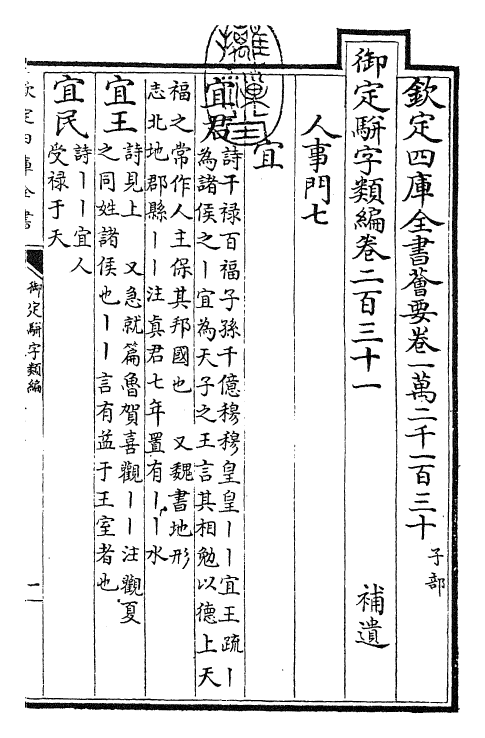 欽定四庫全書薈要卷一萬二千一百三十 子部
御定駢字類編卷二百三十一 補遺
人事門七
宜
宜君 詩干禄百福子孫千億穆穆皇皇丨丨宜王疏丨
為諸侯之丨宜為天子之王言其相勉以德上天
福之常作人主保其邦國也 又魏書地形
志北地郡縣丨丨注真君七年置有丨丨水
宜王 詩見上 又急就篇魯賀喜觀丨丨注觀夏
之同姓諸侯也丨丨言有益于王室者也
宜民 詩丨丨宜人
受禄于天
欽定四庫全書
御定駢字類編
一